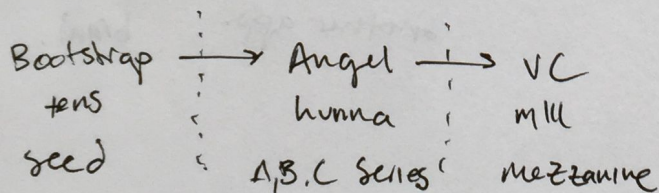 Bootstrap → Angel → VC
tens hunna mill
seed A,B,C Series mezzanine